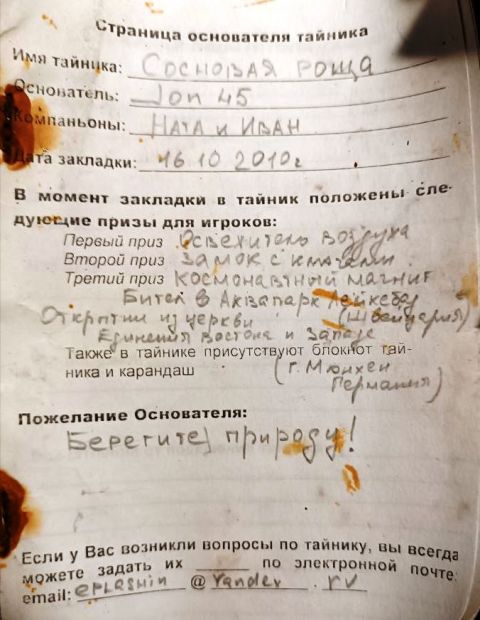 Страница основателя тайника
Имя тайника: Сосновая роща
Основатель: Jon 45
Компаньоны: Ната и Иван
Дата закладки: 16 10 2010г
В момент закладки в тайник положены сле-
дующие призы для игроков:
Первый приз Освежитель воздуха
Второй приз Замок с ключами
Третий приз Космонавтный магнит
Билет в Аквапарк (Швейцария)
Открытки из церкви
Единения Востока и Запада
Также в тайнике присутствуют блокнот тай-
ника и карандаш (г. Мюнхен
Германия)
Пожелание Основателя:
Берегите природу!
Если у Вас возникли вопросы по тайнику, вы всегда
можете задать их ____ по электронной почте:
email: eplashin @ Yandex . ru